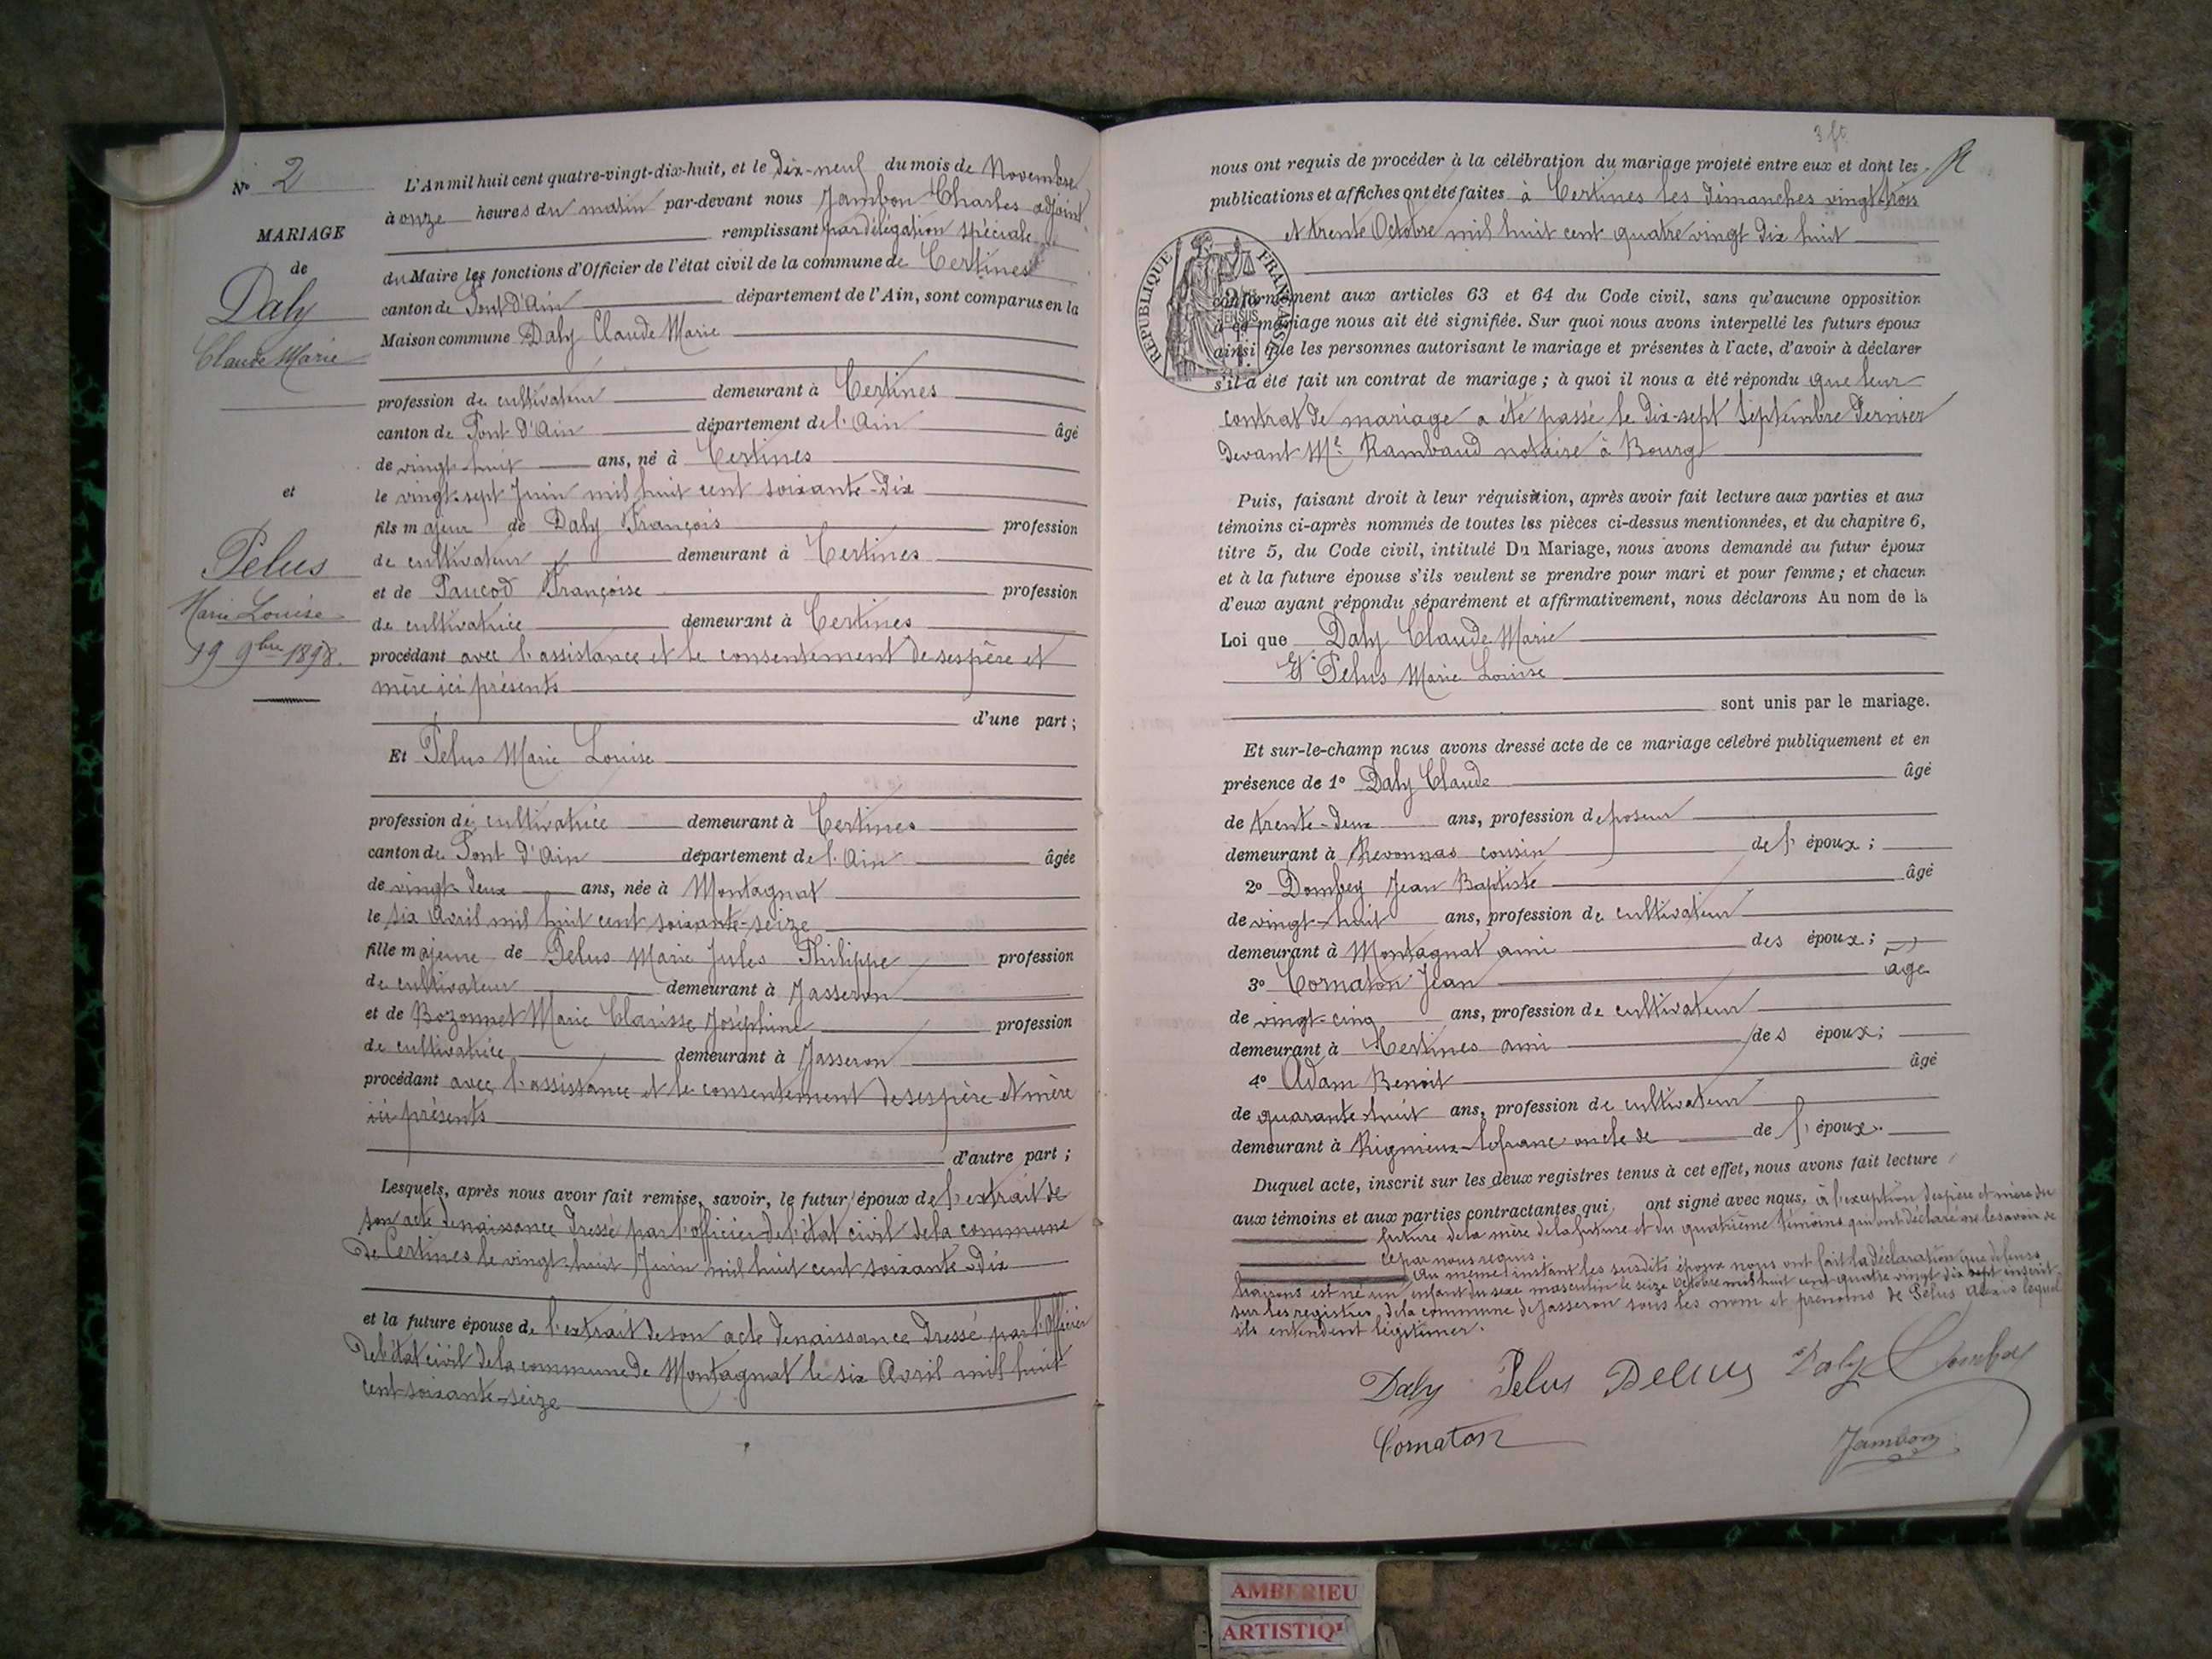 N° 2
MARIAGE
de
Daly
Claude Marie
et
Pelus
Marie Louise
19 9bre 1898.
L'An mil huit cent quatre-vingt-dix-huit, et le dix-neuf du mois de Novembre
à onze heures du matin par-devant nous Jambon Charles adjoint
remplissant par délégation spéciale
du Maire les fonctions d'Officier de l'état civil de la commune de Certines
canton de Pont d'Ain département de l'Ain, sont comparus en la
Maison commune Daly Claude Marie
profession de cultivateur demeurant à Certines
canton de Pont d'Ain département de l'Ain âgé
de vingt-huit ans, né à Certines
le vingt-sept Juin mil huit cent soixante-dix
fils majeur de Daly François profession
de cultivateur demeurant à Certines
et de Paucod Françoise profession
de cultivatrice demeurant à Certines
procédant avec l'assistance et le consentement de ses père et
mère ici présents
d'une part ;
Et Pelus Marie Louise
profession de cultivatrice demeurant à Certines
canton de Pont d'Ain département de l'Ain âgée
de vingt-deux ans, née à Montagnat
le six Avril mil huit cent soixante-seize
fille majeure de Pelus Marie Jules Philippe profession
de cultivateur demeurant à Jasseron
et de Bozonnet Marie Clarisse Joséphine profession
de cultivatrice demeurant à Jasseron
procédant avec l'assistance et le consentement de ses père et mère
ici présents
d'autre part ;
Lesquels, après nous avoir fait remise, savoir, le futur époux de l'extrait de
son acte de naissance dressé par l'officier de l'état civil de la commune
de Certines le vingt-huit Juin mil huit cent soixante-dix
et la future épouse de l'extrait de son acte de naissance dressé par l'Officier
de l'état civil de la commune de Montagnat le six Avril mil huit
cent soixante-seize
3 ft
nous ont requis de procéder à la célébration du mariage projeté entre eux et dont les
publications et affiches ont été faites à Certines les dimanches vingt-trois
et trente Octobre mil huit cent quatre vingt dix huit
REPUBLIQUE FRANÇAISE
conformément aux articles 63 et 64 du Code civil, sans qu'aucune opposition
à ce mariage nous ait été signifiée. Sur quoi nous avons interpellé les futurs époux
ainsi que les personnes autorisant le mariage et présentes à l'acte, d'avoir à déclarer
s'il a été fait un contrat de mariage ; à quoi il nous a été répondu que leur
contrat de mariage a été passé le dix-sept Septembre dernier
devant Me Rambaud notaire à Bourg
Puis, faisant droit à leur réquisition, après avoir fait lecture aux parties et aux
témoins ci-après nommés de toutes les pièces ci-dessus mentionnées, et du chapitre 6,
titre 5, du Code civil, intitulé Du Mariage, nous avons demandé au futur époux
et à la future épouse s'ils veulent se prendre pour mari et pour femme ; et chacun
d'eux ayant répondu séparément et affirmativement, nous déclarons Au nom de la
Loi que Daly Claude Marie
Et Pelus Marie Louise
sont unis par le mariage.
Et sur-le-champ nous avons dressé acte de ce mariage célébré publiquement et en
présence de 1° Daly Claude âgé
de trente-deux ans, profession de poseur
demeurant à Revonnas cousin de l' époux ;
2° Dombey Jean Baptiste âgé
de vingt-huit ans, profession de cultivateur
demeurant à Montagnat ami des époux ;
3° Cornaton Jean âgé
de vingt-cinq ans, profession de cultivateur
demeurant à Certines ami des époux ;
4° Adam Benoit âgé
de quarante-huit ans, profession de cultivateur
demeurant à Rignieux-lefranc oncle de de l' époux.
Duquel acte, inscrit sur les deux registres tenus à cet effet, nous avons fait lecture
aux témoins et aux parties contractantes qui ont signé avec nous, à l'exception des père et mère du
future de la mère de la future et du quatrième témoins qui ont déclaré ne le savoir de
ce par nous requis.
Au même instant les susdits époux nous ont fait la déclaration que de leurs
liaisons est né un enfant du sexe masculin le seize Octobre mil huit cent quatre vingt dix sept inscrit
sur les registres de la commune de Jasseron sous les nom et prénoms de Pelus lequel
ils entendent légitimer.
Daly Pelus Pelus Daly Dombey
Cornaton
Jambon
AMBERIEU
ARTISTIQ